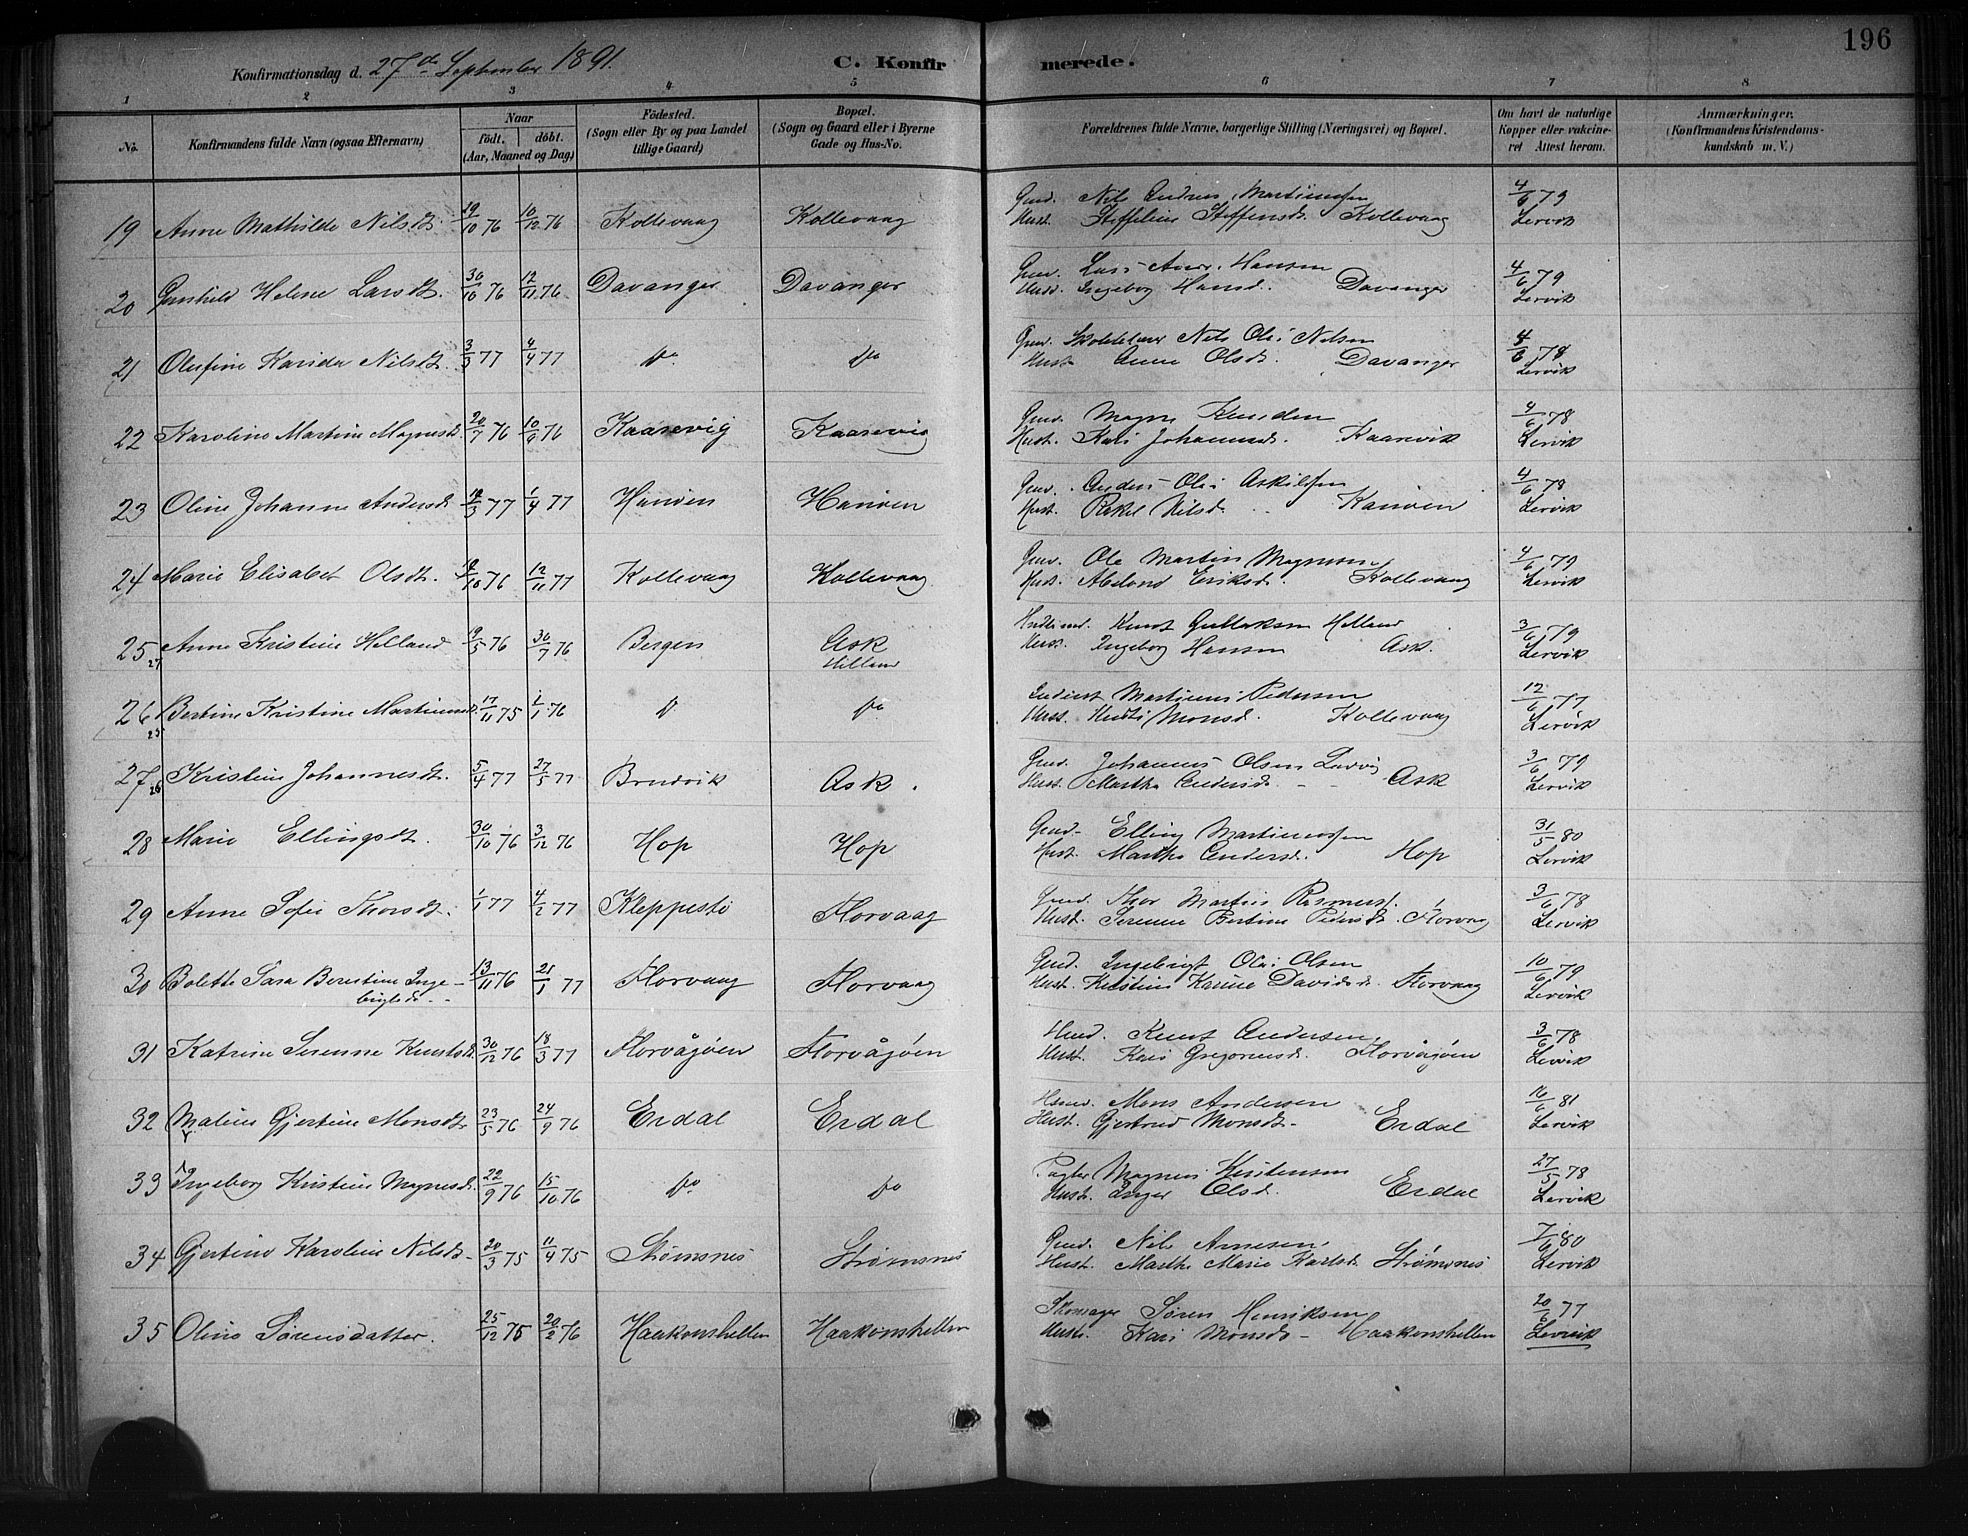 196
Konfirmationsdag d. 27de September 1891. C. Konfirmerede.
1 2 3 4 5 6 7 8
No. Konfirmandens fulde Navn (ogsaa Efternavn) Naar født. døbt. (Aar, Maaned og Dag) Fødested. (Sogn eller By og paa Landet tillige Gaard) Bopæl. (Sogn og Gaard eller i Byerne Gade og Hus-No. Forældrenes fulde Navne, borgerlige Stilling (Næringsvei) og Bopæl. Om havt de naturlige Kopper eller vakcineret Attest herom. Anmærkninger. (Konfirmandens Kristendomskundskab m. V.)
19 Anne Mathilde Nilsdt. 29/10 76 10/12 76 Kollevaag Kollevaag Gmd. Nils Andreas Martinussen 4/6 79
Hust. Steffeline Steffensd. Kollevaag Lervik
20 Gunhild Helene Larsdt. 30/10 76 12/11 76 Davanger Davanger Gmd. Lars Hansen 4/6 79
Hust. Ingeborg Hansd. Davanger Lervik
21 Olufine Karida Nilsdt. 3/3 77 4/4 77 do do Gmd. Nils Ole Nilsen 78
Hust. Anne Olsdt. Davanger Lervik
22 Karoline Martine Magnesd. 20/7 76 10/9 76 Kaarevig Kaarevig Gmd. Magne Knudsen 4/6 78
Hust. Kari Johannesd. Kaarevik Lervik
23 Oline Johanne Andersd. 77 1/4 77 Hanøen Hanøen Gmd. Anders Ole Askildsen 4/6 78
Hust. Rakel Nilsd. Hanøen Lervik
24 Marie Elisabet Olsdt. 10 76 12/11 77 Kollevaag Kollevaag Gmd. Ole Martin Magnesen 4/6 79
Hust. Eriksd. Kollevaag Lervik
25 Anne Kristine Helland 9/5 76 30/7 76 Bergen Ask Knut Gullaksen Helland 3/6 79
27 Helland Hust. Ingeborg Hansen Ask. Lervik
26 Bertine Kristine Martinusd. 17/11 75 1/1 76 do do Martinus Pedersen 12/6 77
25 Hust. Monsd. Kollevaag Lervik
27 Kristine Johannesdt. 5/4 77 27/5 77 Bruvik Ask. Gmd. Johannes Olsen 3/6 79
26 Hust. Martha Andersd. Ask Lervik
28 Marie Ellingsdt. 30/10 76 3/12 76 Hop Hop Gmd. Elling Martinussen 31/5 80
Hust. Martha Andersd. Hop Lervik
29 Anne Sofie Thorsdt. 1/1 77 4/2 77 Kleppestø Florvaag Gmd. Thor Martin Rasmuss. 3/6 78
Hust. Serenne Bertine Pedersdt. Florvaag Lervik
30 Bolette Sara Berentine Inge- 13/11 76 21/1 77 Florvaag Florvaag Gmd. Ingebrigt Ole Olsen 10/6 79
brigtsd. Hust. Kristine Karine Davidsd. Florvaag Lervik
31 Katrine Serenne Knutsdt. 30/12 76 18/3 77 Florvågøen Florvågøen Knut Andersen 3/6 78
Hust. Kari Gregoriusd. Florvågøen Lervik
32 Maline Gjertine Monsdt. 23/5 76 24/9 76 Erdal Erdal Mons Andersen 16/6 81
Hust. Gjertrud Monsdt. Erdal Lervik
33 Ingeborg Kristine Magnesd. 22/9 76 15/10 76 do do Magnus Kristensen 27/5 78
Hust. Inger Olsd. Erdal Lervik
34 Gjertine Karoline Nilsdt. 20/3 75 11/4 75 Strømsnes Strømsnes Gmd. Nils Arnesen 7/6 80
Hust. Marthe Marie Karlsd. Strømsnes Lervik
35 Oline Sørensdatter. 25/12 75 20/2 76 Haakonshellen Haakonshellen Skomager Søren Henriksen 20/6 77
Hust. Kari Monsd. Haakonshellen Lervik